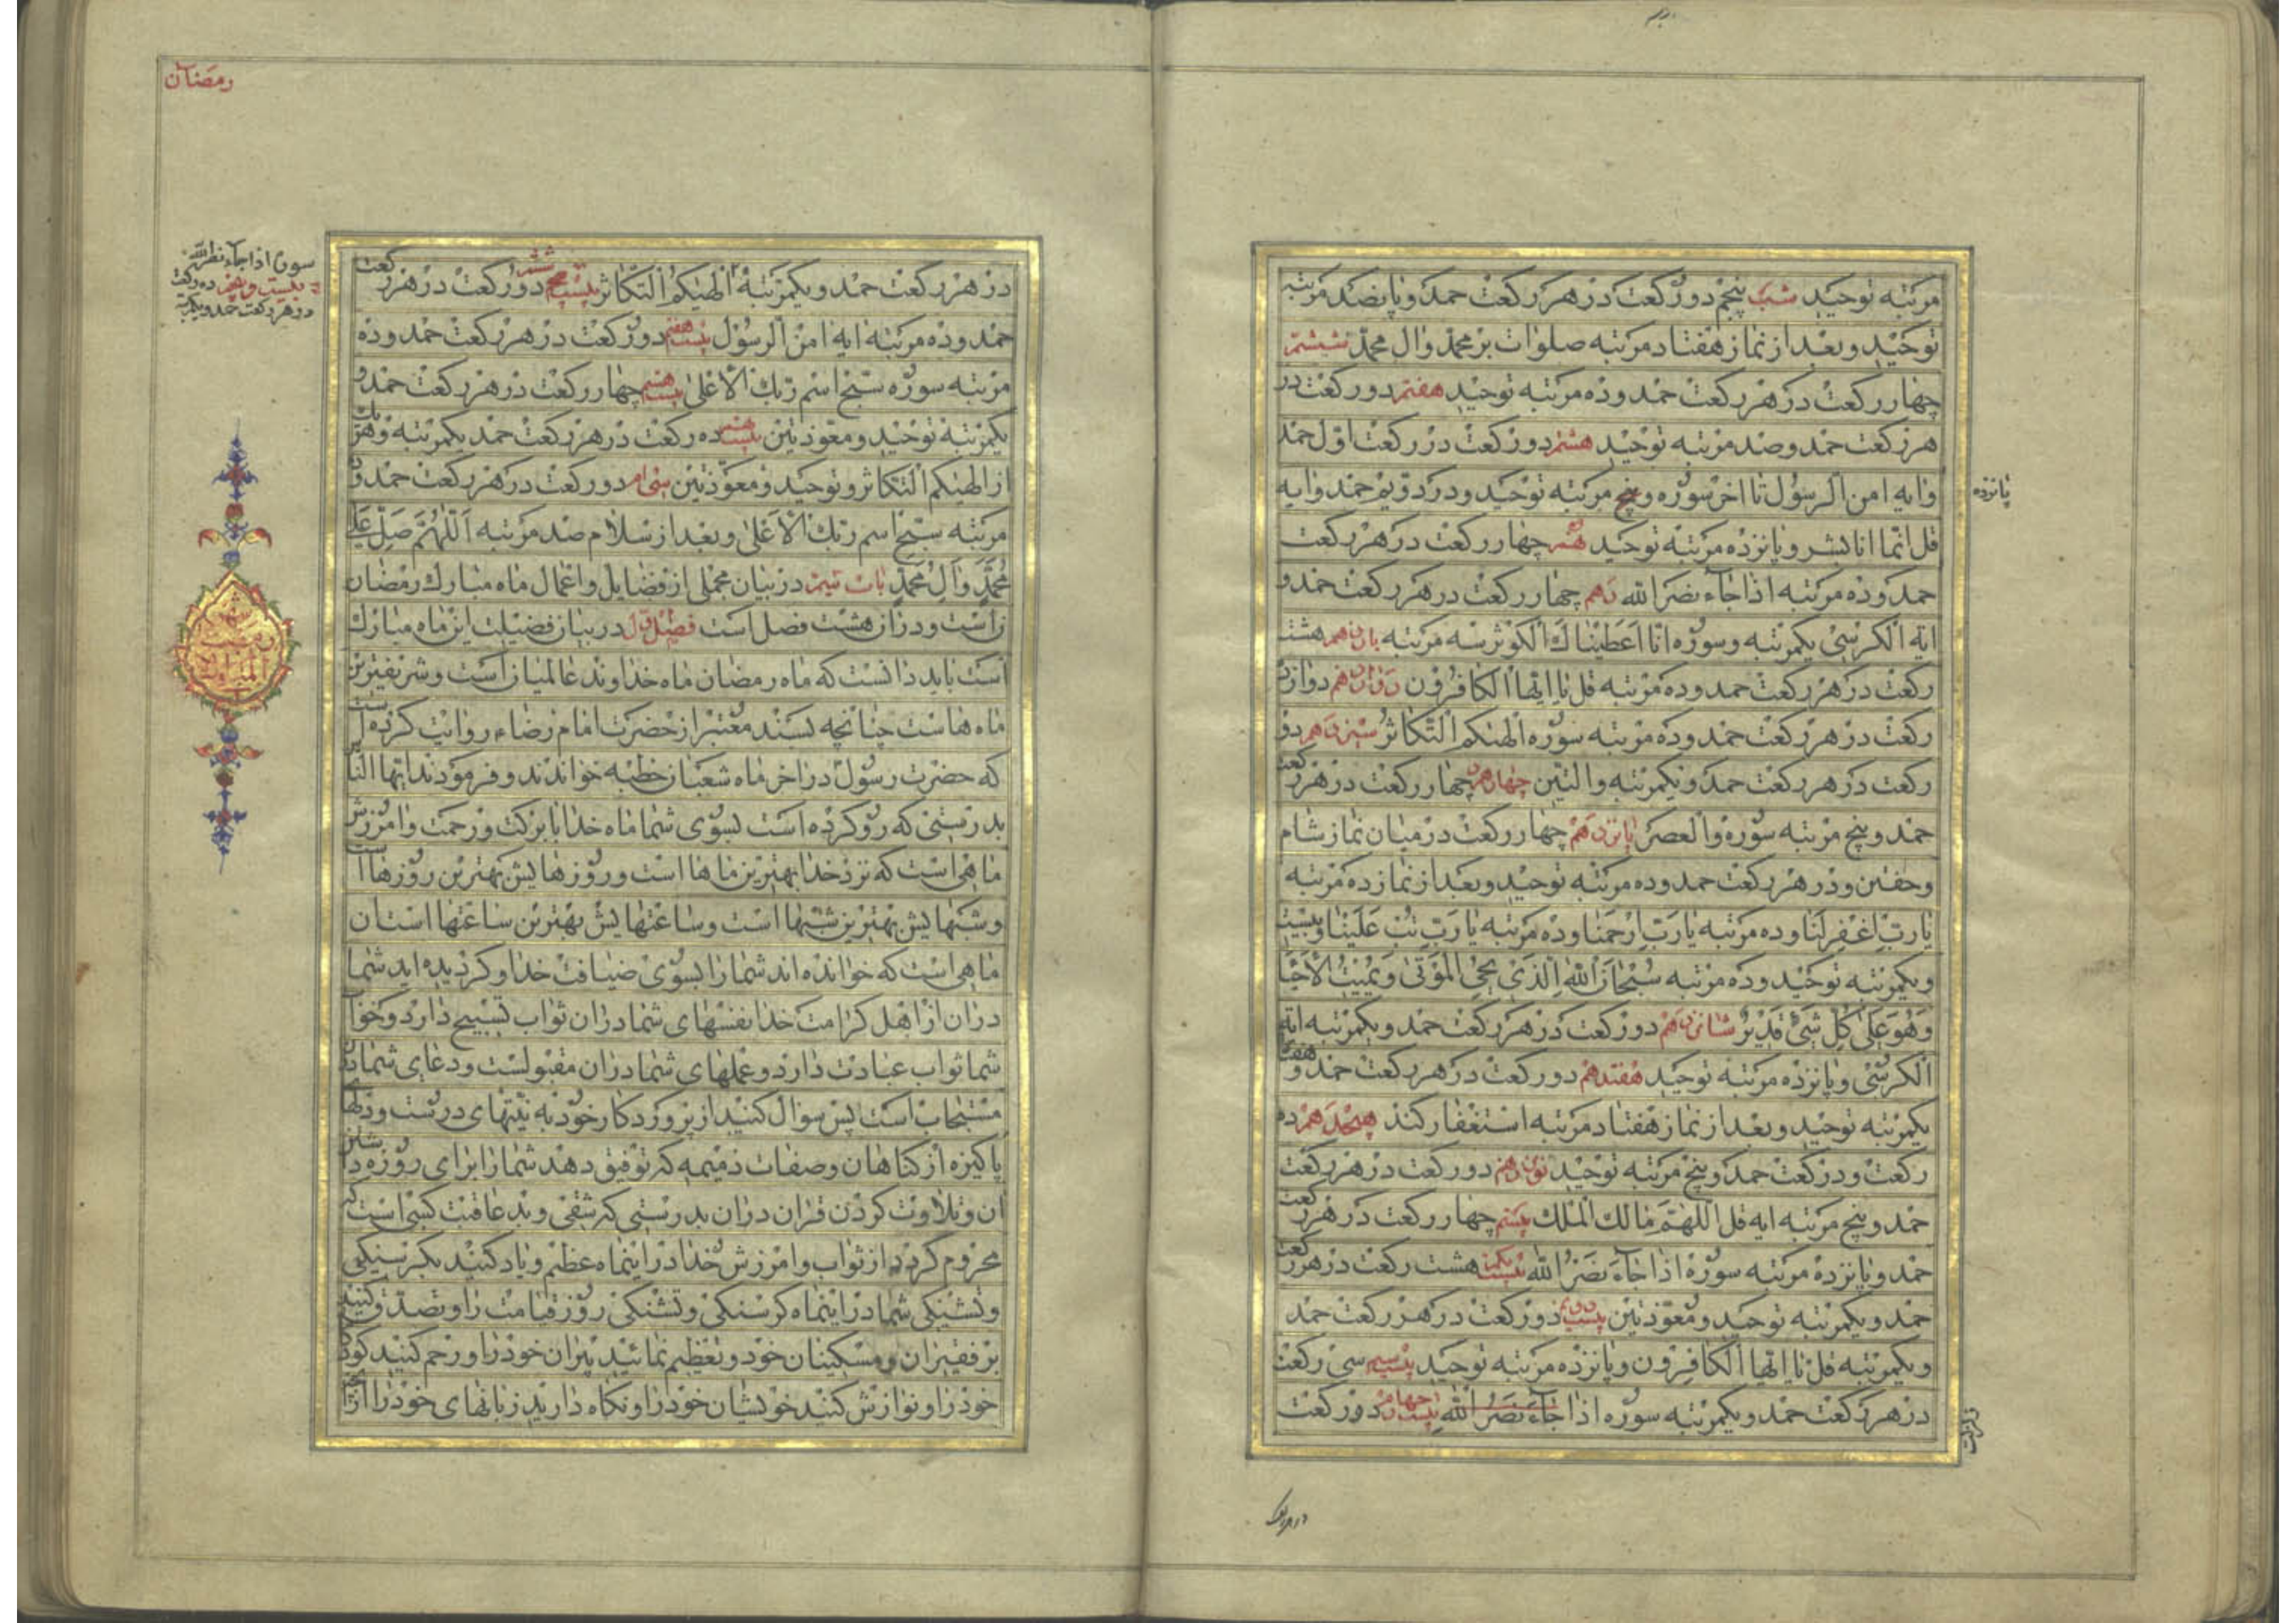 مرتبه توحید شب پنجم دو رکعت در هر رکعت حمد و پانصد مرتبه
توحید و بعد از نماز هفتاد مرتبه صلوات بر محمد وال محمد ششم
چهار رکعت در هر رکعت حمد و ده مرتبه توحید هفتم دو رکعت در
هر رکعت حمد و صد مرتبه توحید هشتم دو رکعت در رکعت اول حمد
وایه امن الرسول تا اخر سوره و پنج مرتبه توحید و در دویم حمد وایه
پانزده
قل انما انا بشر و پانزده مرتبه توحید نهم چهار رکعت در هر رکعت
حمد و ده مرتبه اذا جاء نصر الله دهم چهار رکعت در هر رکعت حمد و
ایة الکرسی یکمرتبه و سوره انا اعطیناک الکوثر سه مرتبه یازدهم هشت
رکعت در هر رکعت حمد و ده مرتبه قل یا ایها الکافرون دوازدهم دوازده
رکعت در هر رکعت حمد و ده مرتبه سوره الهیکم التکاثر سیزدهم دو
رکعت در هر رکعت حمد و یکمرتبه والتین چهاردهم چهار رکعت در هر رکعت
حمد و پنج مرتبه سوره والعصر پانزدهم چهار رکعت در میان نماز شام
و خفتن و در هر رکعت حمد و ده مرتبه توحید و بعد از نماز ده مرتبه
یا رب اغفر لنا و ده مرتبه یا رب ارحمنا و ده مرتبه یا رب تب علینا و بیست
و یکمرتبه توحید و ده مرتبه سبحان الله الذی یحیی الموتی و یمیت الاحیا
وهو علی کل شیء قدیر شانزدهم دو رکعت در هر رکعت حمد و یکمرتبه ایة
الکرسی و پانزده مرتبه توحید هفتدهم دو رکعت در هر رکعت حمد و هفتاد
یکمرتبه توحید و بعد از نماز هفتاد مرتبه استغفار کند هیجدهم ده
رکعت و در رکعت حمد و پنج مرتبه توحید نوزدهم دو رکعت در هر رکعت
حمد و پنج مرتبه ایه قل اللهم مالک الملک بیستم چهار رکعت در هر رکعت
حمد و پانزده مرتبه سوره اذا جاء نصر الله بیست یکم هشت رکعت در هر رکعت
حمد و یکمرتبه توحید و معوذتین بیست دویم دو رکعت در هر رکعت حمد
و یکمرتبه قل یا ایها الکافرون و پانزده مرتبه توحید بیست سیم سی رکعت
در هر رکعت حمد و یکمرتبه سوره اذا جاء نصر الله بیست چهارم دو رکعت
رمضان
در هر رکعت حمد و یکمرتبه الهیکم التکاثر بیست ششم دو رکعت در هر رکعت
سوره اذا جاء نصر الله
بیست و پنجم ده رکعت
در هر رکعت حمد و یکمرتبه
حمد و ده مرتبه ایه امن الرسول بیست هفتم دو رکعت در هر رکعت حمد و ده
مرتبه سوره سبح اسم ربک الاعلی بیست هشتم چهار رکعت در هر رکعت حمد و
یکمرتبه توحید و معوذتین بیست نهم ده رکعت در هر رکعت حمد یکمرتبه و هر یک
از الهیکم التکاثر و توحید و معوذتین سی ام دو رکعت در هر رکعت حمد و ده
مرتبه سبح اسم ربک الاعلی و بعد از سلام صد مرتبه اللهم صل علی
محمد وال محمد باب سیم در بیان مجملی از فضایل و اعمال ماه مبارک رمضان
است و در ان هشت فصل است فصل اول در بیان فضیلت این ماه مبارک
است باید دانست که ماه رمضان ماه خداوند عالمیان است و شریفترین
ماه هاست چنانچه بسند معتبر از حضرت امام رضاء روایت کرده است
که حضرت رسول در اخر ماه شعبان خطبه خواندند و فرمودند ایها الناس
بدرستی که رو کرده است بسوی شما ماه خدا با برکت و رحمت و امرزش
ماهی است که نزد خدا بهترین ماها است و روزهایش بهترین روزها است
و شبهایش بهترین شبها است و ساعتهایش بهترین ساعتها است ان
ماهی است که خوانده اند شما را بسوی ضیافت خدا و کردیده اید شما
در ان از اهل کرامت خدا نفسهای شما در ان ثواب تسبیح دارد و خواب
شما ثواب عبادت دارد و عملهای شما در ان مقبولست و دعای شما در ان
مستجاب است پس سؤال کنید از پروردکار خود به نیتهای درست و دلهای
پاکیزه از کناهان و صفات ذمیمه که توفیق دهد شما را برای روزه داشتن
ان و تلاوت کردن قران در ان بدرستی که شقی و بدعاقبت کسی است که
محروم کردد از ثواب و امرزش خدا در اینماه عظیم و یاد کنید بکرسنکی
و تشنکی شما در اینماه کرسنکی و تشنکی روز قیامت را و تصدق کنید
بر فقیران و مسکینان خود و تعظیم نمائید پیران خود را و رحم کنید کودکان
خود را و نوازش کنید خویشان خود را و نکاه دارید زبانهای خود را از انچه